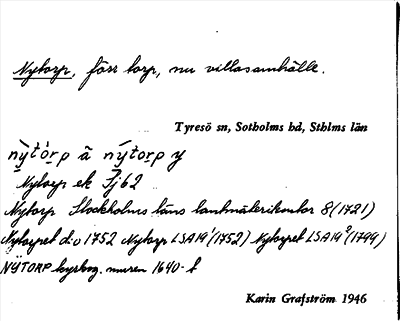 Nytorp, förr torp, nu villasamhälle.
Tyresö sn, Sotholms hd, Sthlms län
nỳtórp ã nýtorp y
Nytorp ek Fj 62
Nytorp Stockholms läns lantmäterikontor 8 (1721)
Nytorpet d:o 1752 Nytorp LSA 19¹ (1752) Nytorpet LSA 19² (1799)
NYTORP kyrkog. muren 1640- t
Karin Grafström 1946